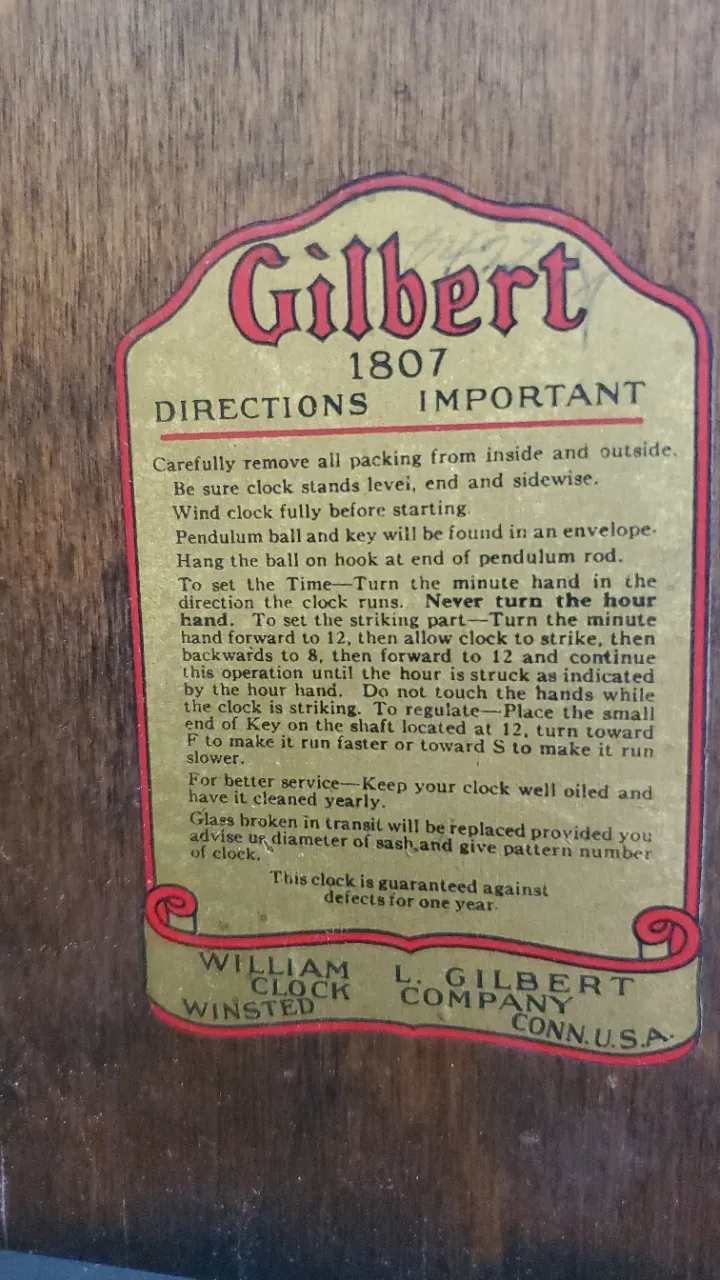 Gilbert
1807
DIRECTIONS IMPORTANT
Carefully remove all packing from inside and outside.
Be sure clock stands level, end and sidewise.
Wind clock fully before starting.
Pendulum ball and key will be found in an envelope.
Hang the ball on hook at end of pendulum rod.
To set the Time—Turn the minute hand in the
direction the clock runs. Never turn the hour
hand. To set the striking part—Turn the minute
hand forward to 12, then allow clock to strike, then
backwards to 8, then forward to 12 and continue
this operation until the hour is struck as indicated
by the hour hand. Do not touch the hands while
the clock is striking. To regulate—Place the small
end of Key on the shaft located at 12, turn toward
F to make it run faster or toward S to make it run
slower.
For better service—Keep your clock well oiled and
have it cleaned yearly.
Glass broken in transit will be replaced provided you
advise us diameter of sash, and give pattern number
of clock.
This clock is guaranteed against
defects for one year.
WILLIAM L. GILBERT
CLOCK COMPANY
WINSTED CONN. U.S.A.